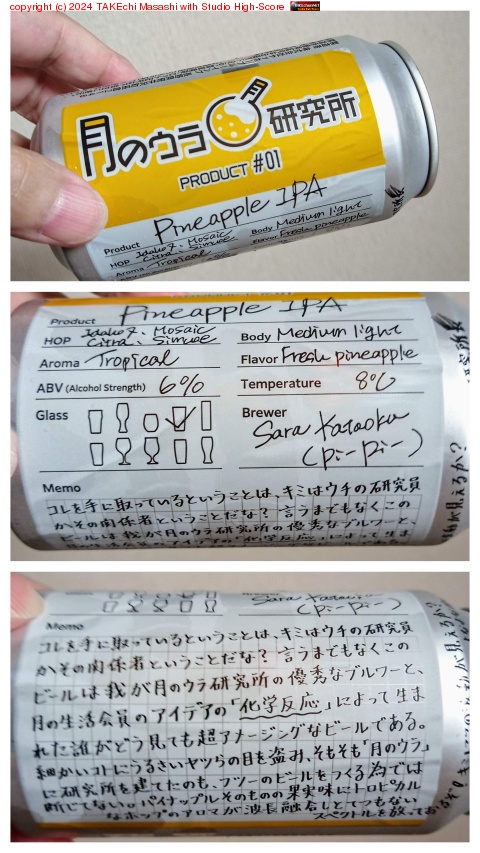 copyright (c) 2024 TAKEchi Masashi with Studio High-Score
月のウラ研究所
PRODUCT #01
Product Pineapple IPA
HOP Idaho7. Mosaic
Citra. Simcoe
Body Medium light
Aroma Tropical
Flavor Fresh pineapple
Product Pineapple IPA
HOP Idaho7. Mosaic
Citra. Simcoe
Body Medium light
Aroma Tropical
Flavor Fresh pineapple
ABV (Alcohol Strength) 6%
Temperature 8℃
Glass
Brewer
Sara Kataoka
(ぴーぴー)
Memo
コレを手に取っているということは、キミはウチの研究員
かその関係者ということだな？言うまでもなくこの
ビールは我が月のウラ研究所の優秀なブルワーと、
Sara Kataoka
(ぴーぴー)
Memo
コレを手に取っているということは、キミはウチの研究員
かその関係者ということだな？言うまでもなくこの
ビールは我が月のウラ研究所の優秀なブルワーと、
月の生活会員のアイデアの「化学反応」によって生ま
れた誰がどう見ても超アメージングなビールである。
細かいコトにうるさいヤツらの目を盗み、そもそも「月のウラ」
に研究所を建てたのも、フツーのビールをつくる為では
断じてない。パイナップルそのものの果実味にトロピカル
なホップのアロマが波長融合しとてつもない
スペクトルを放っておるぞ!